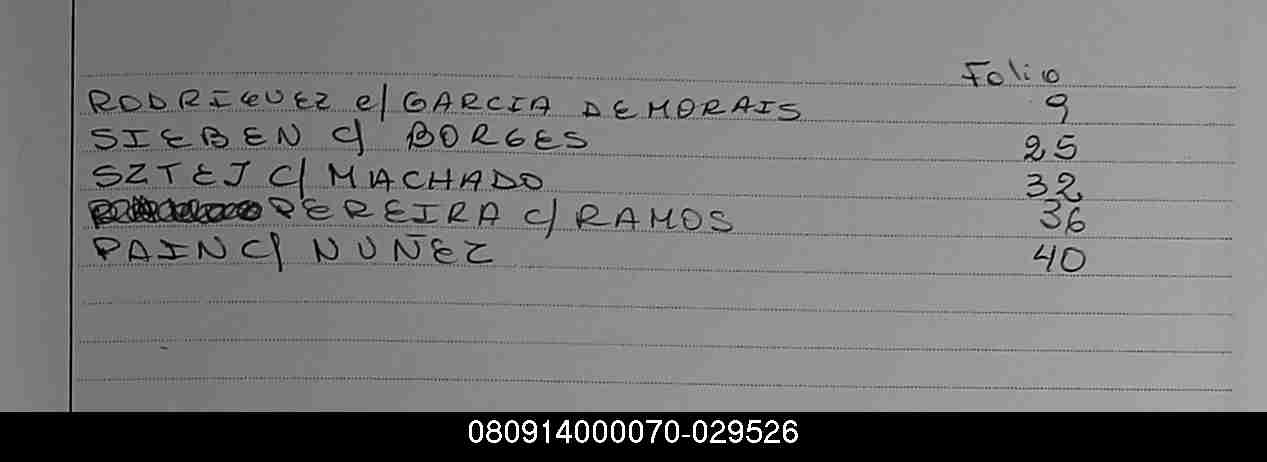 Folio
RODRIGUEZ c/ GARCIA DE MORAIS 9
SIEBEN c/ BORGES 25
SZTEJ C/ MACHADO 32
PEREIRA c/ RAMOS 36
PAIN C/ NUÑEZ 40
080914000070-029526